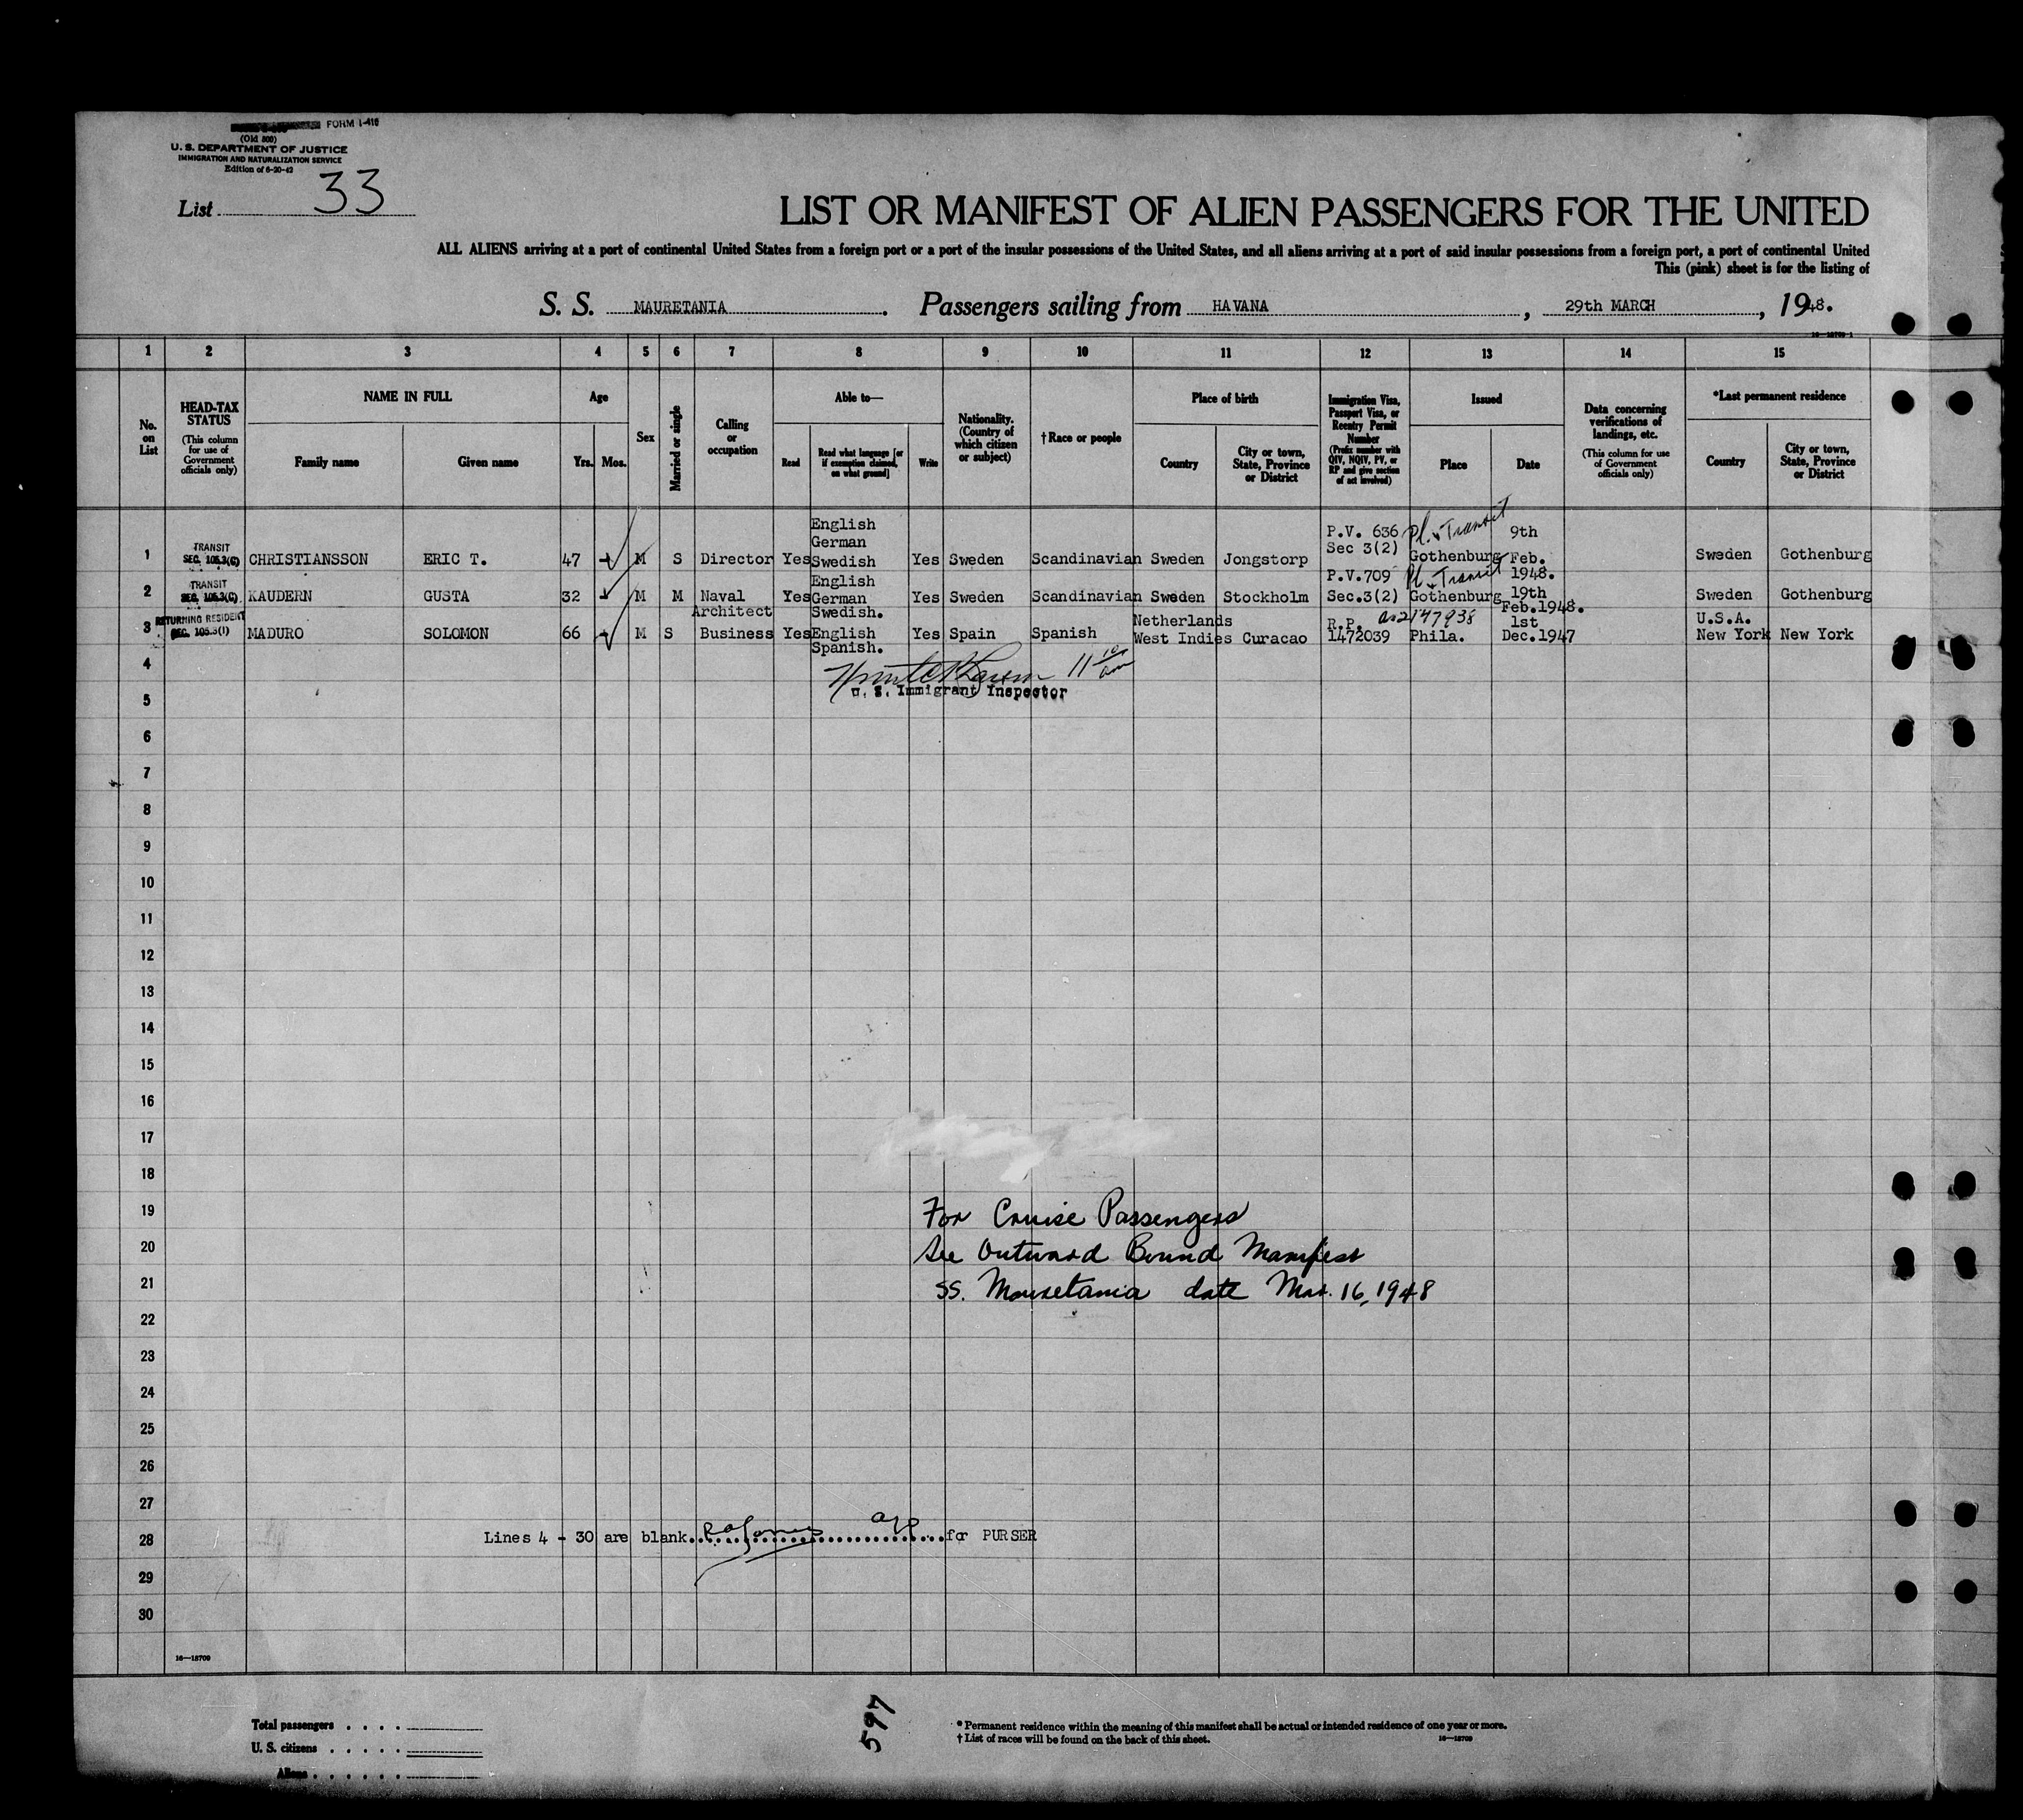 FORM I-410
(Old 500)
U. S. DEPARTMENT OF JUSTICE
IMMIGRATION AND NATURALIZATION SERVICE
Edition of 6-20-42
List 33
LIST OR MANIFEST OF ALIEN PASSENGERS FOR THE UNITED
ALL ALIENS arriving at a port of continental United States from a foreign port or a port of the insular possessions of the United States, and all aliens arriving at a port of said insular possessions from a foreign port, a port of continental United
This (pink) sheet is for the listing of
S. S. MAURETANIA. Passengers sailing from HAVANA, 29th MARCH, 1948.
16—18709-1
1 2 3 4 5 6 7 8 9 10 11 12 13 14 15
No. on List
HEAD-TAX STATUS (This column for use of Government officials only)
NAME IN FULL
Family name Given name
Age
Yrs. Mos.
Sex
Married or single
Calling or occupation
Able to—
Read Read what language [or if exemption claimed, on what ground] Write
Nationality. (Country of which citizen or subject)
†Race or people
Place of birth
Country City or town, State, Province or District
Immigration Visa, Passport Visa, or Reentry Permit Number (Prefix number with QIV, NQIV, PV, or RP and give section of act involved)
Issued
Place Date
Data concerning verifications of landings, etc. (This column for use of Government officials only)
*Last permanent residence
Country City or town, State, Province or District
1 TRANSIT SEC. 105.3(C) CHRISTIANSSON ERIC T. 47 M S Director Yes English German Swedish Yes Sweden Scandinavian Sweden Jongstorp P.V. 636 Sec 3(2) Pl. Transit Gothenburg 9th Feb. 1948. Sweden Gothenburg
2 TRANSIT SEC. 105.3(C) KAUDERN GUSTA 32 M M Naval Architect Yes English German Swedish. Yes Sweden Scandinavian Sweden Stockholm P.V.709 Sec.3(2) Pl. Transit Gothenburg 19th Feb.1948. Sweden Gothenburg
3 RETURNING RESIDENT SEC. 105.3(1) MADURO SOLOMON 66 M S Business Yes English Spanish. Yes Spain Spanish Netherlands West Indies Curacao R.P. 1472039 2147938 Phila. 1st Dec.1947 U.S.A. New York New York
4
11 10 am
U. S. Immigrant Inspector
5
6
7
8
9
10
11
12
13
14
15
16
17
18
19 For Cruise Passengers
20 See Outward Bound Manifest
21 SS. Mauretania date Mar. 16, 1948
22
23
24
25
26
27
28 Lines 4 - 30 are blank for PURSER
29
30
16—18709
Total passengers
U. S. citizens
Aliens
597
* Permanent residence within the meaning of this manifest shall be actual or intended residence of one year or more.
† List of races will be found on the back of this sheet.
16—18709